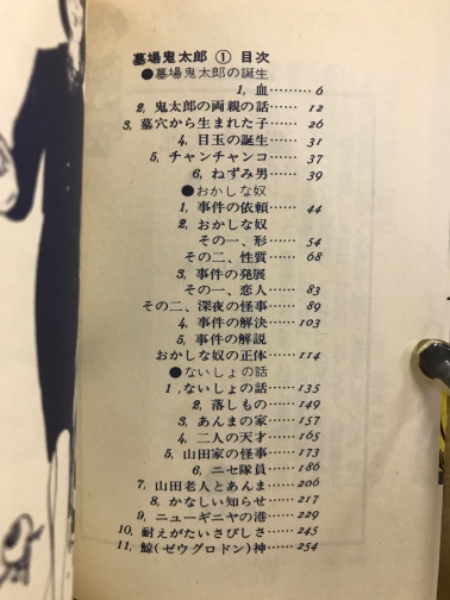 墓場鬼太郎 ① 目次
●墓場鬼太郎の誕生
1, 血………6
2, 鬼太郎の両親の話……12
3, 墓穴から生まれた子……26
4, 目玉の誕生……31
5, チャンチャンコ……37
6, ねずみ男……39
●おかしな奴
1, 事件の依頼……44
2, おかしな奴
その一、形……54
その二、性質……68
3, 事件の発展
その一、恋人……83
その二、深夜の怪事……89
4, 事件の解決……103
5, 事件の解説
おかしな奴の正体……114
●ないしょの話
1, ないしょの話……135
2, 落しもの……149
3, あんまの家……157
4, 二人の天才……165
5, 山田家の怪事……173
6, ニセ隊員……186
7, 山田老人とあんま……206
8, かなしい知らせ……217
9, ニューギニヤの港……229
10, 耐えがたいさびしさ……245
11, 鯨(ゼウグロドン)神……254